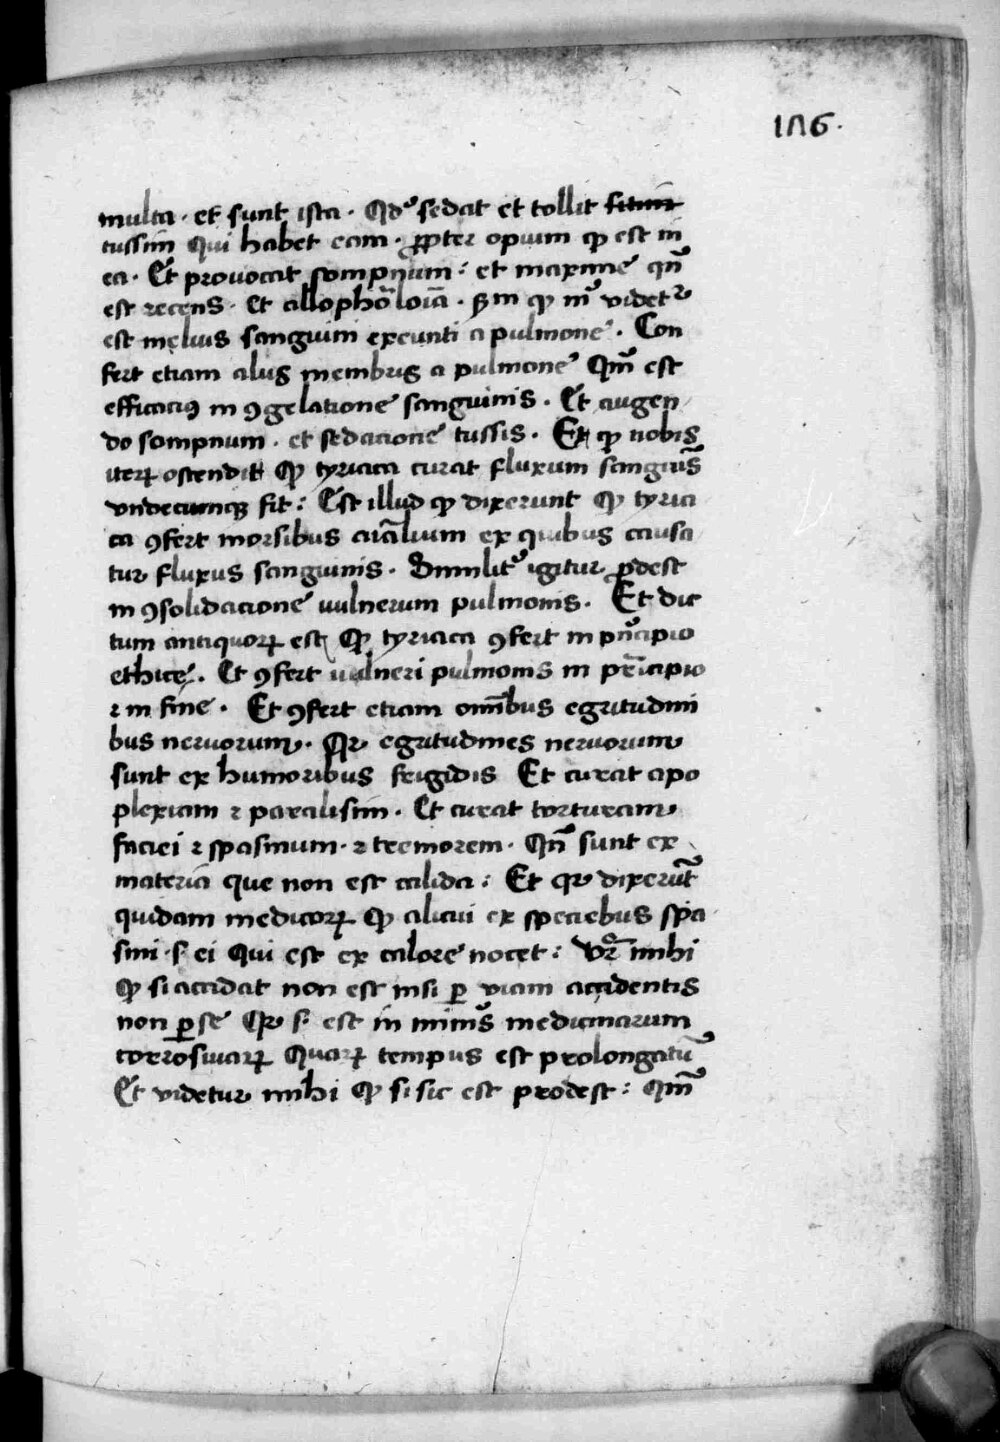 1Λ6.
multa · et sunt ista · Qd' sedat et tollit sitim
tussim Qui habet eam · ꝓpter opium qꝫ est in
ea · Et prouocat sompnum : et maxime qn̄
est recens · Et allophōloīa · s̄m qꝫ mͥ videtᷣ
est melius sanguini exeunti a pulmone · Con
fert etiam alijs membris a pulmone Qm̄ est
efficaciꝰ in ꝯgelatione sanguinis · Et augen
do sompnum · et sedacione tussis · Et qꝫ nobis
iterꝝ ostendit Qꝫ tyriaca curat fluxum sanguīs
vndecumqꝫ fit : Est illud qꝫ dixerunt Qꝫ tyria
ca ꝯfert morsibus aīalium ex quibus causa
tur fluxus sanguinis · Similitͦ igitur ꝓdest
in ꝯsolidacione uulnerum pulmonis · Et dic
tum antiquorꝝ est Qꝫ tyriaca ꝯfert in pͥncipio
ethice · Et ꝯfert uulneri pulmonis in prīcipio
⁊ in fine · Et ꝯfert etiam om̄ibus egritudini
bus neruorum · Qr egritudines neruorum
sunt ex humoribus frigidis Et curat apo
plexiam ⁊ paralisim · Et curat torturam
faciei ⁊ spasmum · ⁊ tremorem · Qn̄ sunt ex
materia que non est calida : Et qr dixerūt
quidam medicorꝝ Qꝫ alicui ex speciebus spa
smi · s · ei Qui est ex calore nocet : Vr̄ mihi
Qꝫ si accidat non est nisi ꝑ viam accidentis
non ꝑ se Qr s · est in nimͥs medicinarum
corrosiuarꝝ Quarꝝ tempus est prolongatū
Et videtur mihi Qꝫ si sic est prodest : Qm̄